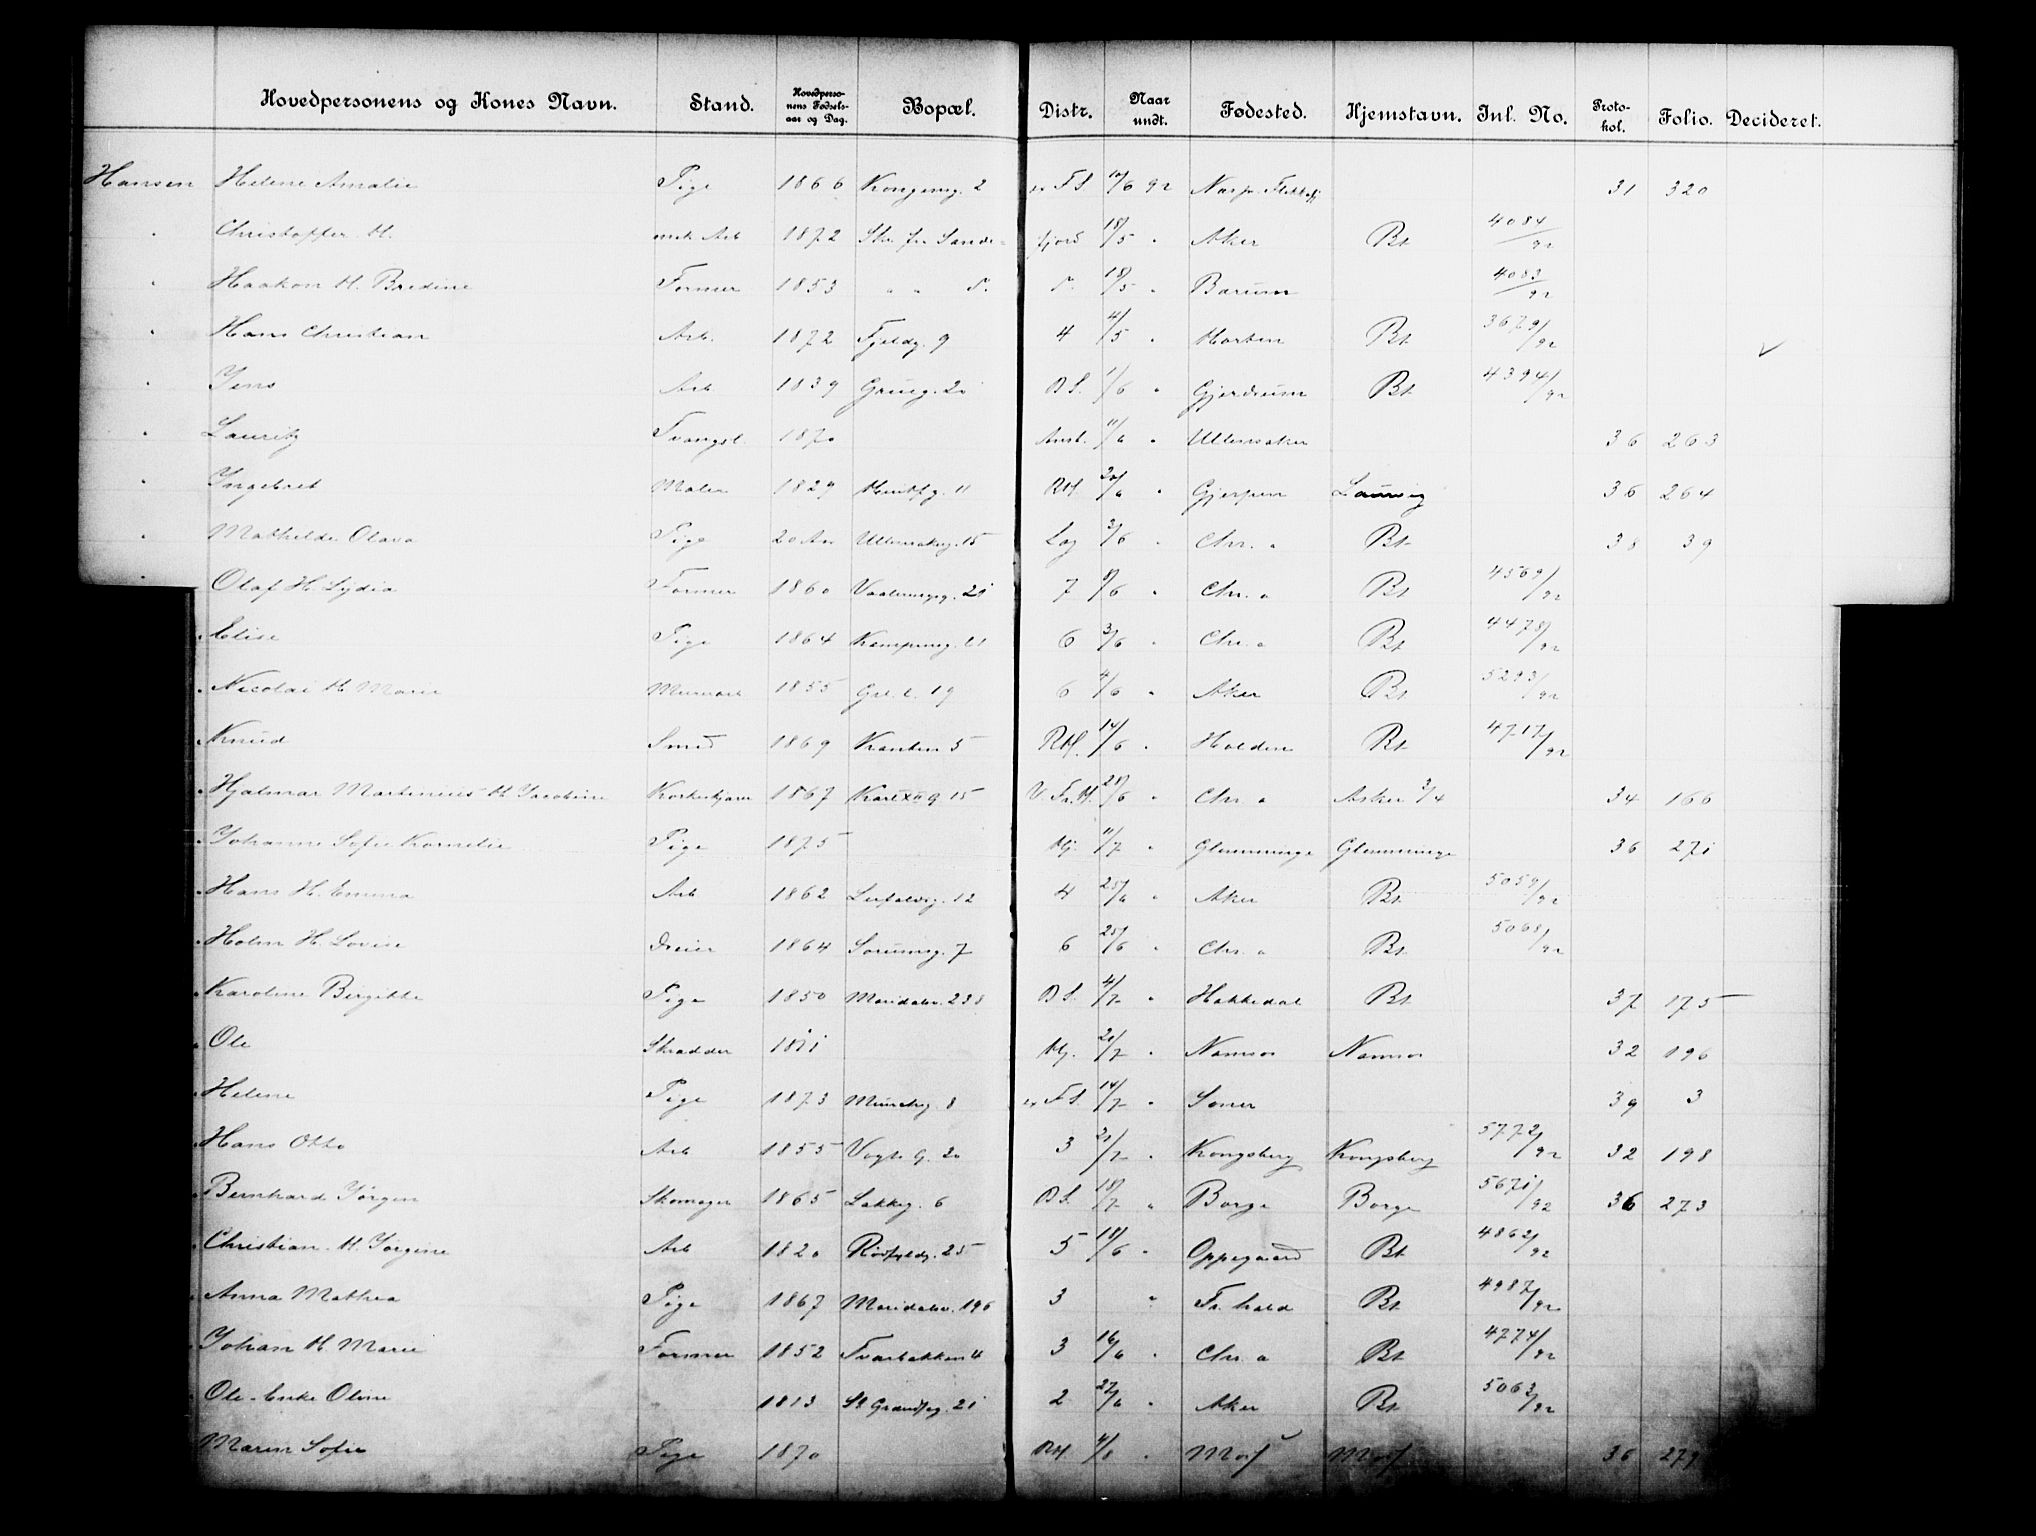 Hovedpersonens og Kones Navn. Stand. Hovedperso-nens Fødsels-aar og Dag. Bopæl. Distr. Naar undt. Fødested. Hjemstavn. Inl. No. Proto-kol. Folio. Decideret.
Hansen Helene Amalie Pige 1866 Kongensg. 2 FS 10/6 92 31 320
" Christoffer H. Arb 1872 fra Sande- fjord 18/5 " Aker Bt 4084/92
" Haakon H. Bredine Former 1853 " " 18/5 " Bærum 4083/92
" Hans Christian Arb. 1872 Fjeldg. 9 4 4/5 " Horten Bt 3679/92
" Jens Arb 1839 Grueg. 20 DS. 1/6 " Gjerdrum Bt 4394/92
" Lauritz Tvangsl. 1870 Anst. 11/6 " Ullensaker 36 263
" Ingebret Maler 1829 11 RH. 20/6 " Gjerpen Laurvig 36 264
" Mathilde Olava Pige 20 Aar Ullensakerg. 15 Log 3/6 " Chr. a Bt 38 39
" Olaf H. Lydia Former 1860 Vaalerengg. 21 7 8/6 " Chr. a Bt 4569/92
" Elise Pige 1864 Kampeng. 21 6 3/6 " Chr. a Bt 4478/92
" Nicolai H. Marie Murarb 1855 Grl. l. 19 6 4/6 " Aker Bt 5293/92
" Knud Smed 1869 Kanten 5 RH. 14/6 " Holden Bt 4717/92
" Hjalmar Martinius H. Jacobine Korkeskjærer 1867 Karl XII g 15 V. Fr. H. 28/6 " Chr. a Asker 3/4 34 166
" Johanne Sofie Kornelie Pige 1875 Hj. 11/7 " Glemminge Glemminge 36 271
" Hans H. Emma Arb 1862 Leirfaldsg. 12 4 25/6 " Aker Bt 5059/92
" Holm H. Lovise Dreier 1864 Sorumsg. 7 6 25/6 " Chr. a Bt 5068/92
" Karoline Birgitte Pige 1850 Maridalsv. 238 DS. 4/7 " Hakkedal Bt 37 175
" Ole Skrædder Hj. 20/7 " Namsos Namsos 32 196
" Helene Pige 1873 Munchsg. 8 FS. 14/7 " Soner 39 3
" Hans Otto Arb 1855 Vogts G. 20 3 21/7 " Kongsberg Kongsberg 5772/92 32 198
" Bernhard Jørgen Skomager 1865 Lakkeg. 6 DS. 18/7 " Borge Borge 5671/92 36 273
" Christian H. Jørgine Arb 1820 Rødfyldg. 25 5 18/6 " Oppegaard Bt 4862/92
" Anna Mathea Pige 1867 Maridalsv. 196 3 " Fr. hald Bt 4987/92
" Johan H. Marie Former 1852 Tværbakken 4 3 16/6 " Chr. a Bt 4774/92
" Ole - Enke Oline 1813 St. Grændseg. 21 2 27/6 " Aker Bt 5063/92
Maren Sofie Pige 1870 RH. 4/8 " Moss Moss 36 279